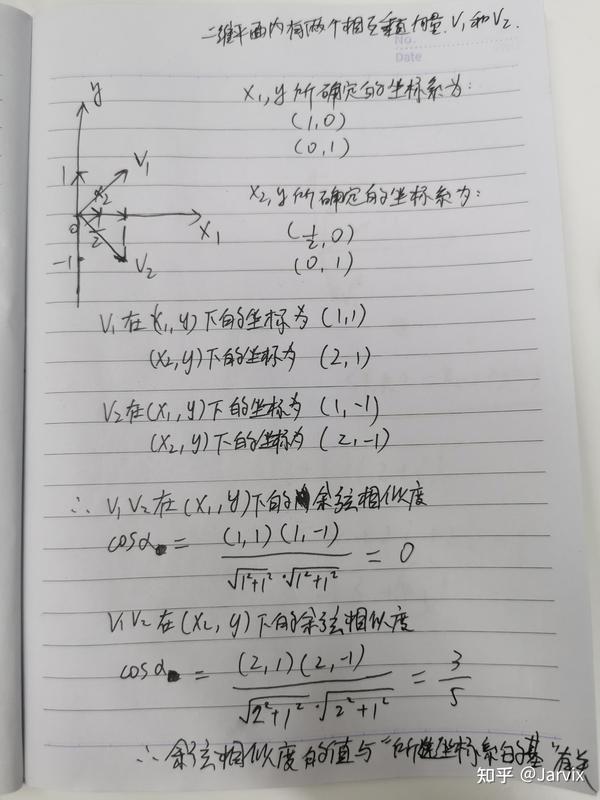 二维平面内有两个相互垂直向量 V₁ 和 V₂.
No.
Date
y
X₁, y 所确定的坐标系为:
(1,0)
(0,1)
1
V₁
X₂
0
1/2
X₁
-1
V₂
X₂, y 所确定的坐标系为:
(1/2, 0)
(0, 1)
V₁ 在 (X₁, y) 下的坐标为 (1,1)
(X₂, y) 下的坐标为 (2, 1)
V₂ 在 (X₁, y) 下的坐标为 (1, -1)
(X₂, y) 下的坐标为 (2, -1)
∴ V₁ V₂ 在 (X₁, y) 下的余弦相似度
cosα = (1,1)(1,-1) / √1²+1² · √1²+1² = 0
V₁ V₂ 在 (X₂, y) 下的余弦相似度
cosα = (2,1)(2,-1) / √2²+1² · √2²+1² = 3/5
∴ 余弦相似度的值与 "所选坐标系的基" 有关
知乎 @Jarvix